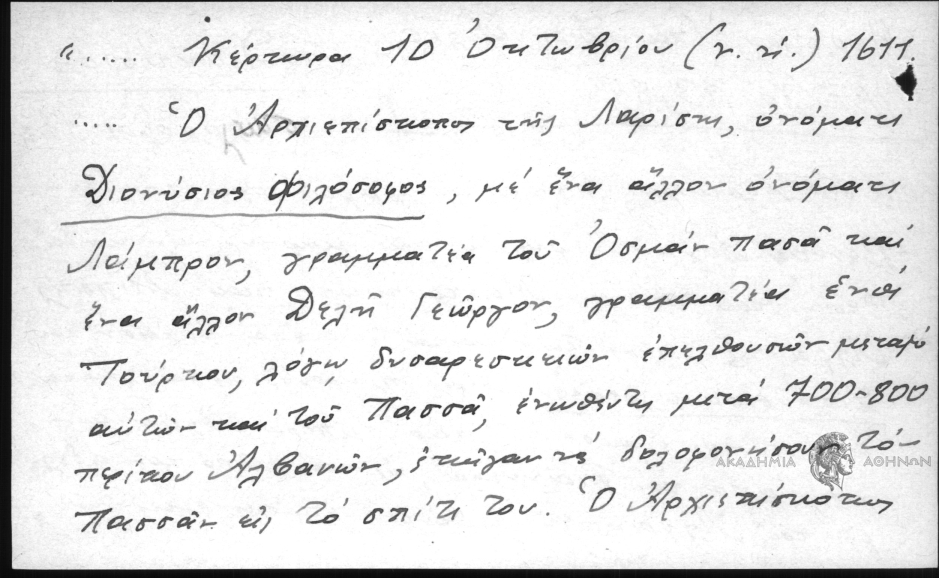 «..... Κέρκυρα 10 Ὀκτωβρίου (ν. ἡ.) 1611.
..... Ὁ Ἀρχιεπίσκοπος τῆς Λαρίσης, ὀνόματι
Διονύσιος Φιλόσοφος, μέ ἕνα ἄλλον ὀνόματι
Λάμπρον, γραμματέα τοῦ Ὀσμάν πασᾶ καί
ἕνα ἄλλον Δελῆ Γεῶργον, γραμματέα ἑνός
Τούρκου, λόγῳ δυσαρεσκειῶν ἐπελθουσῶν μεταξύ
αὐτῶν καί τοῦ Πασσᾶ, ἑνωθέντες μετά 700-800
περίπου Ἀλβανῶν, ἐπῆγαν νά δολοφονήσουν τόν
Πασσᾶν εἰς τό σπίτι του. Ὁ Ἀρχιεπίσκοπος
ΑΚΑΔΗΜΙΑ ΑΘΗΝΩΝ